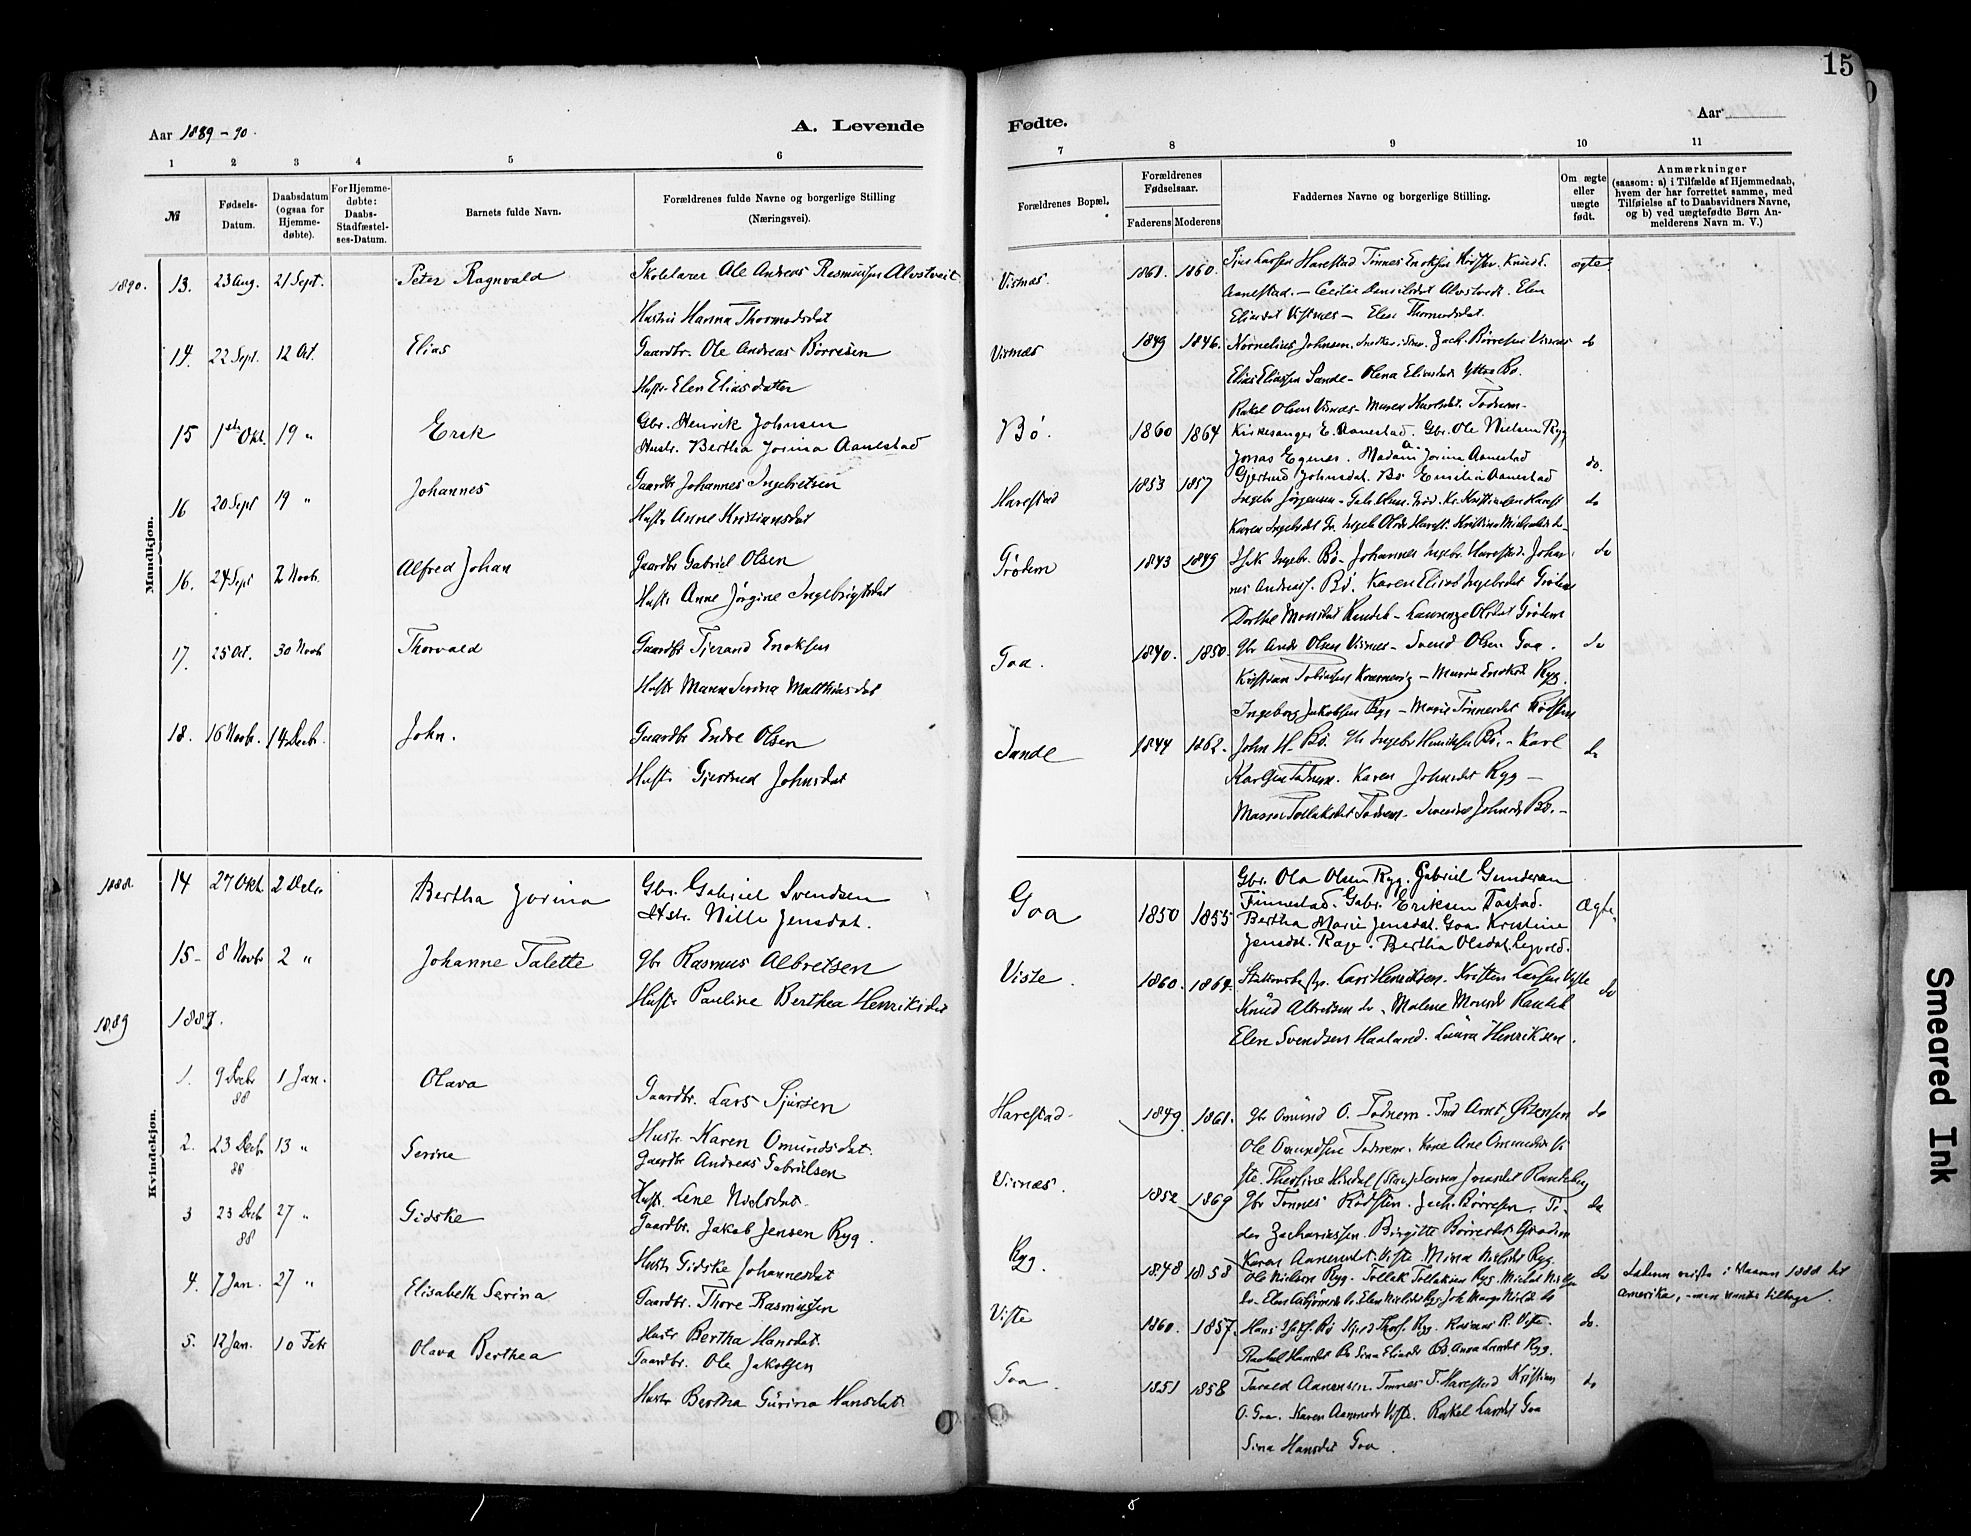 15
Aar 1889-90.
A. Levende
Fødte.
Aar
1 2 3 4 5 6 7 8 9 10 11
№
Fødsels-
Datum.
Daabsdatum
(ogsaa for
Hjemme-
døbte).
For Hjemme-
døbte:
Daabs-
Stadfæstel-
ses-Datum.
Barnets fulde Navn.
Forældrenes fulde Navne og borgerlige Stilling
(Næringsvei).
Forældrenes Bopæl.
Forældrenes
Fødselsaar.
Faderens Moderens
Faddernes Navne og borgerlige Stilling.
Om ægte
eller
uægte
født.
Anmærkninger
(saasom: a) i Tilfælde af Hjemmedaab,
hvem der har forrettet samme, med
Tilføielse af to Daabsvidners Navne,
og b) ved uægtefødte Børn An-
melderens Navn m. V.)
Mandkjøn.
1890. 13. 23 Aug. 21 Sept. Peter Ragnvald Skolelærer Ole Andreas Rasmussen Alvstveit
Hustru Hanna Thormodsdat
Visnæs. 1861. 1860. Harestad Tønnes Knud E.
Aanestad. — Cecilie Elen
Eliasdat Vistnes — Elen Thormodsdat.
ægte
14. 22 Sept. 12 Oct. Elias Gaardbr. Ole Andreas Børresen
Hustr. Elen Eliasdatter
Visnæs 1849 1846. Kornelius Johnsen. Zach. Børresen Visnæs
Elias Eliassen Sande — Olena Eliasdat Bø.
Rakel Olsen Visnes — Maren Todnem.
do
15 1ste Okt. 19 " Erik Gbr. Henrik Johnsen
Hustr. Bertha Jorina Aanestad
Bø. 1860 1864 Kirkesanger E. Aanestad. Gbr. Ole Nielsen Ryg
Jonas Egenes. Madam Jorina Aanestad
Gjertrud Johnsdat. Bø Emilie Aanestad
do.
16 20 Sept 19 " Johannes Gaardbr Johannes Ingebretsen
Hustr Anne Kristiansdat
Harestad 1853 1857 Ingebr Jørgensen — Kr. Kristiansen Harest
Karen Ingebdat Ingeb Harest. Kristine
do
16. 24 Sept 2 Novb. Alfred Johan Gaardbr Gabriel Olsen
Hustr Anne Jørgine Ingebrigtsdat
Grødem 1843 1849 Ingebr. Bø — Johannes Ingebr Harestad. Johan-
nes Andreass. Bø. Karen Elisab Ingebdat Grødem
Dorthe Monsdat Randeb — Laurenze Olsdat Grødem
do
17. 25 Oct. 30 Novb Thorvald Gaardbr Tjerand Enoksen
Hustr Maren Serina Matthiasdat
Goa. 1840. 1850. Gbr Andr Olsen Visnes — Svend Olsen Goa.
Kristian Tobiasen Kvernevig — Maria Ryg.
Ingeborg Jakobsen Ryg — Marie Tønnesdat
do
18. 16 Novb. 14 Decbr. John. Gaardbr Endre Olsen
Hustr Gjertrud Johnsdat
Sande 1844 1862. John H. Bø. Gbr Ingebr Henriksen Bø. — Karl
Todnem. Karen Johnsdat Ryg —
Maren Tollaksdat Todnem. Bø. —
do
Kvindekjøn.
1888. 14 27 Okt. 2 Decbr Bertha Jorina Gbr. Gabriel Svendsen
Hstr. Nille Jensdat.
Goa 1850 1855 Gbr. Ola Olsen Ryg. Gabriel Gundersen
Finnestad. Gabr. Eriksen Tastad.
Bertha Marie Jensdat. Goa Kristine
Jensdat. Rage. Bertha Olsdat.
Ægte
15 — 8 Novbr 2 " Johanne Talette Gbr Rasmus Albretsen
Hustr Pauline Berthea Henriksdat
Viste. 1860. 1864. Lars Henriksen. Kristen Larsen Viste
Knud Albretsen do. Malene Monsdt Randeb
Elen Svendsen Haaland. Laura Henriksen.
do
1889 1889.
1. 9 Decbr 88 1 Jan. Olava Gaardbr. Lars Sjursen
Hustr. Karen Omundsdat.
Harestad. 1849. 1861. Gbr Omund O. Todnem. Arnt Østensen
Ole Omundsen Todnem. Kone Ane Omundsdt Vi-
ste. Randeberg
do
2. 23 Decbr 88 13 " Serine Gaardbr Andreas Gabrielsen
Hustr. Lene Nielsdat.
Visnæs. 1852 1869 Gbr Tønnes Zach. Børresen. To-
Zachariassen. Birgitte Børresdat Grødem
do
3 23 Decb 88 27 " Gidske Gaardbr. Jakob Jensen Ryg.
Hustr Gidske Johannesdat
Ryg. 1848 1858 Karen Viste. Mina Nielsdt Ryg.
Ole Nielsen Ryg. Tollak Tollaksen Ryg. Michal
do. Elen do. Elen Nielsdt Ryg
do
Faderen reiste i 1888 til
Amerika, — men vendte tilbage.
4. 7 Jan. 27 " Elisabeth Serina Gaardbr. Thore Rasmussen
Hustr Bertha Hansdat.
Viste 1860. 1857. Hans Bø Ryg. Rasmus R. Viste.
Rachel Hansdt Bø Sina Eliasdt Bø Anna Ryg.
do.
5. 12 Jan. 10 Febr Olava Berthea Gaardbr. Ole Jakobsen
Hustr Bertha Gurina Hansdat
Goa. 1851 1858 Tarald Aanensen. Tønnes T. Harestad Kristian
O. Goa. Karen Viste. Rakel Larsdt Goa
Sina Hansdt Goa.
do
Smeared Ink